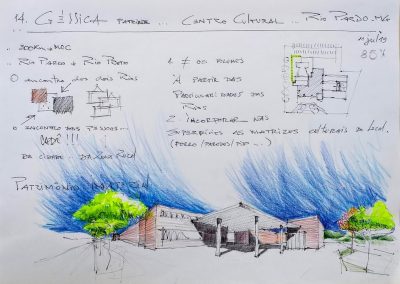 14. GÉSSICA ... CENTRO CULTURAL ... RIO PARDO MG
11 jul 19
85%
.. 300KM + MOC
.. RIO PARDO + RIO PRETO
O ENCONTRO DOS DOIS RIOS
O ENCONTRO DAS PESSOAS...
CADÊ!!!
DA CIDADE DA ZONA RURAL
PATRIMÔNIO
1 ≠ OS
À PARTIR DAS
PARTICULARIDADES DAS
RUAS
2 INCORPORAR NAS
SUPERFÍCIES AS MATRIZES CULTURAIS DO LOCAL.
(FORRO/PAREDES/PISO...)